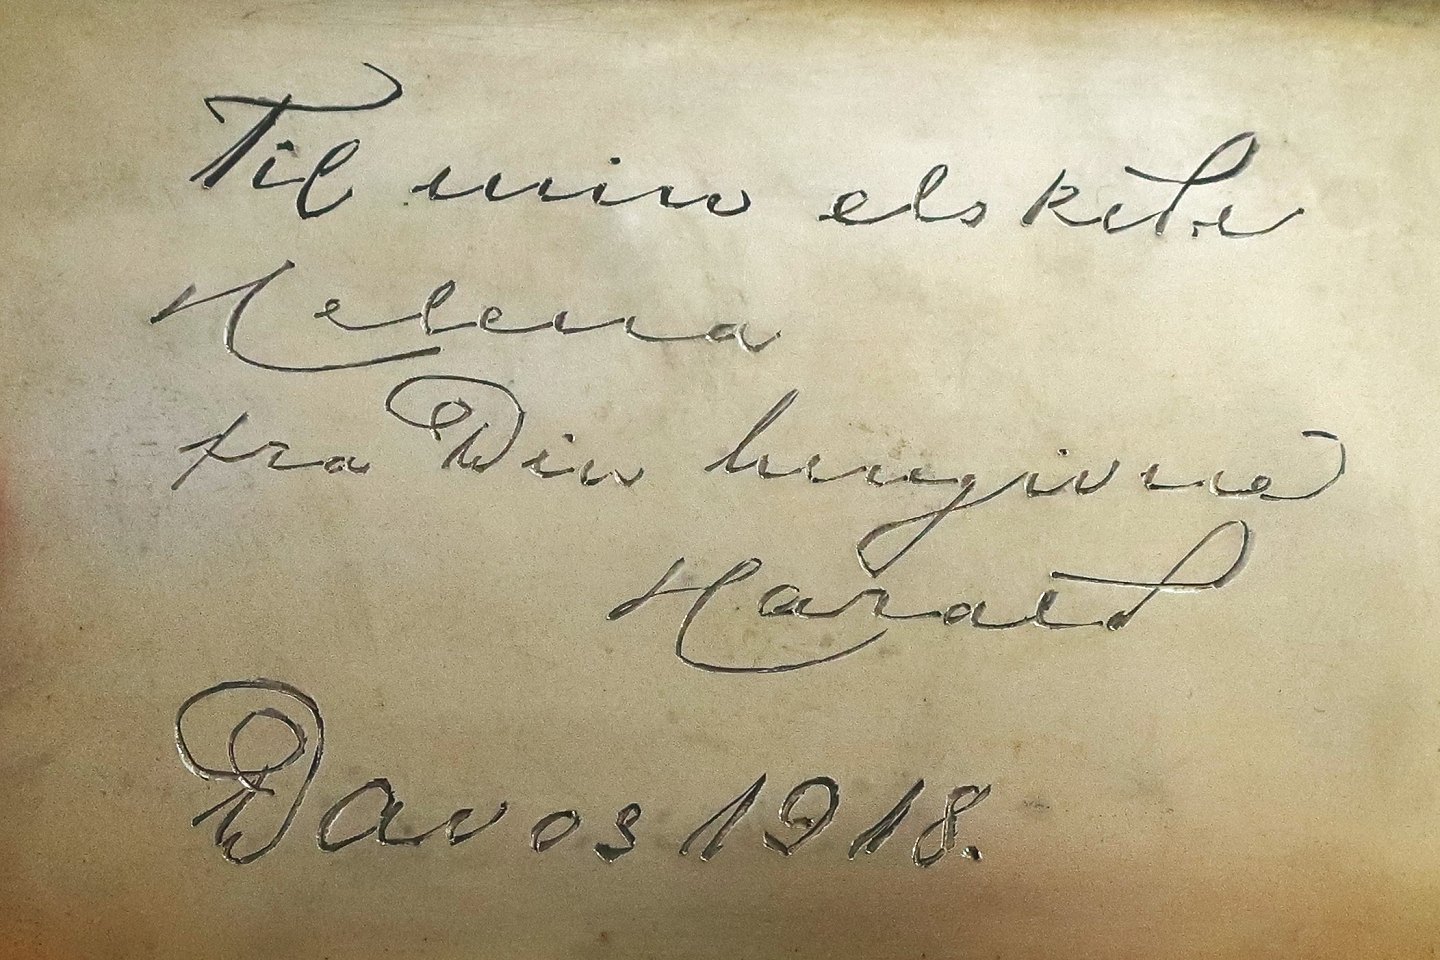 Til min elskede
Helena
fra Din hengivne
Harald
Davos 1918.